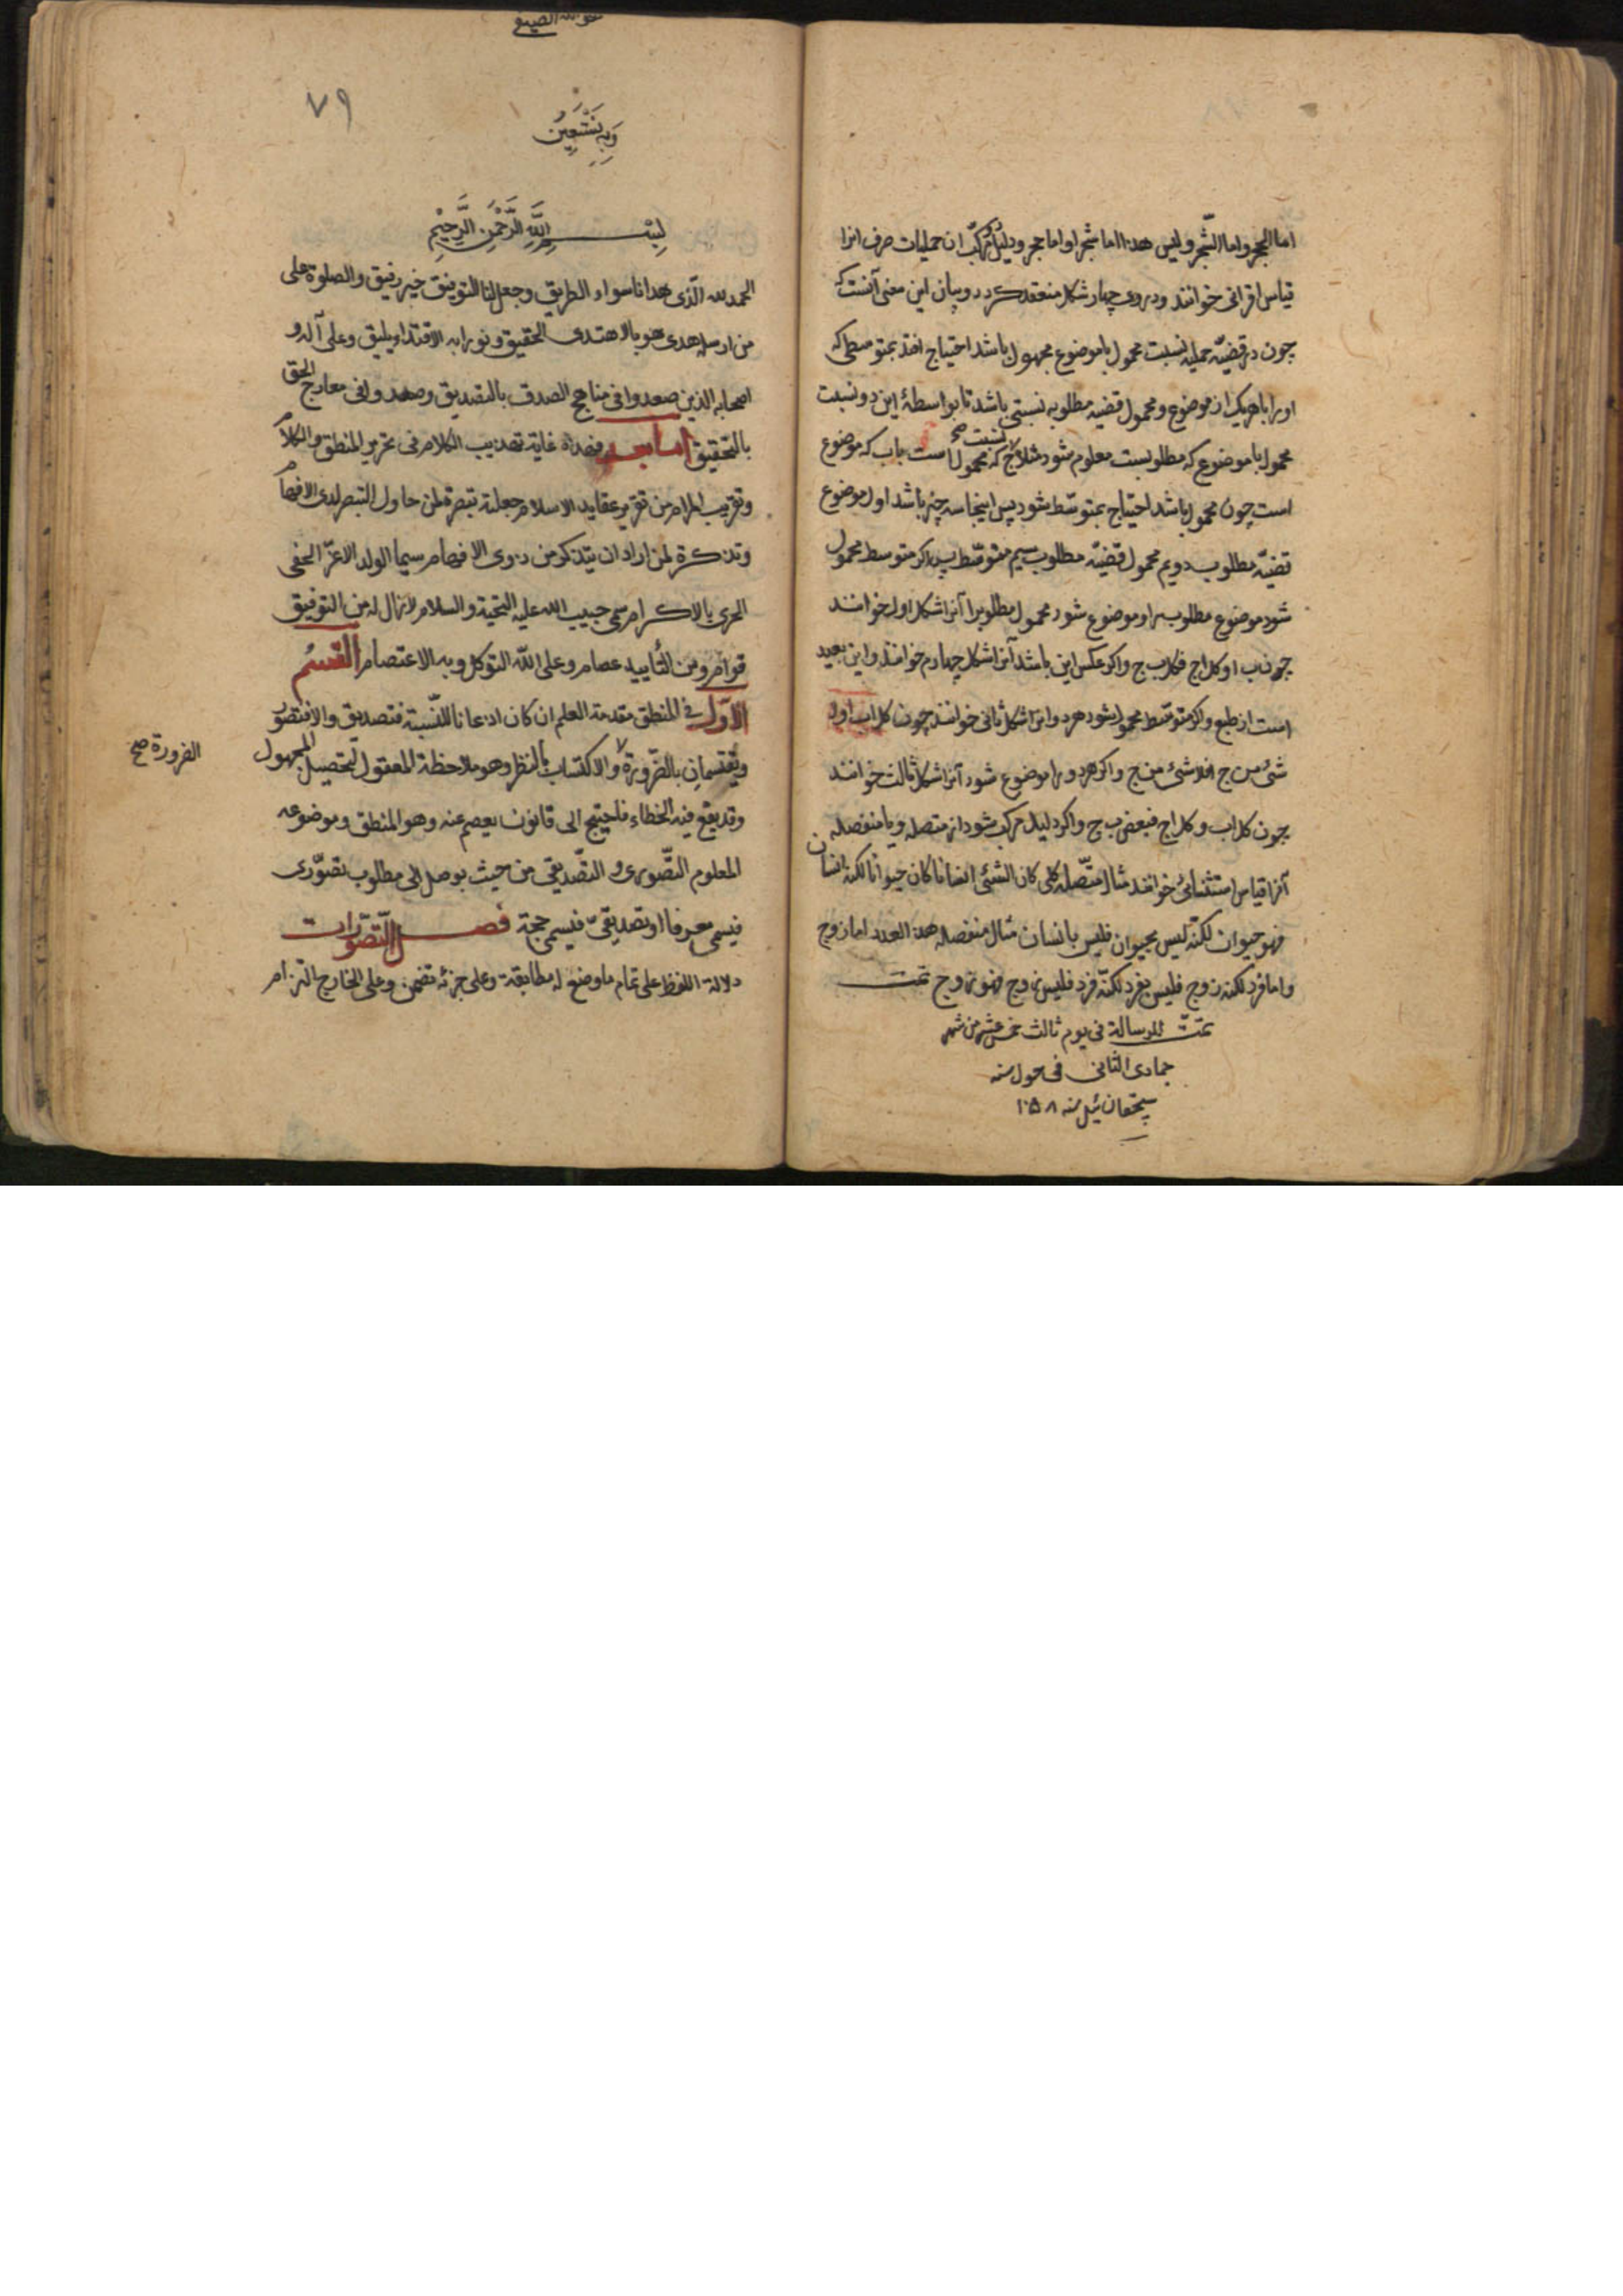 اما الحجر واما الشجر وليس هذا اما شجرا واما حجر ودليل مركب از حمليات صرف انرا
قياس اقرانى خوانند و در وى چهار شكل منعقد كردد و بيان اين معنى آنست كه
چون در قضيّه حمليه نسبت محمول با موضوع مجهول باشد احتياج افتد بمتوسطى كه
او را با هر يك از موضوع و محمول قضيه مطلوبه نسبتى باشد تا بواسطهٔ اين دو نسبت
نسبت صح
محمول با موضوع كه مطلوبست معلوم شود مثلا ج كه محمول است با ب كه موضوع
است چون مجهول باشد احتياج بمتوسّط شود پس اينجا سه چيز باشد اول موضوع
قضيّه مطلوب دويم محمول قضيّه مطلوب سيم متوسّط پس اكر متوسط محمول
شود موضوع مطلوب را و موضوع شود محمول مطلوب را آنرا شكل اول خوانند
چون ب ا و كل ا ج فكل ب ج و اكر عكس اين باشد آنرا شكل چهارم خوانند و اين بعيد
است از طبع و اكر متوسّط محمول شود هر دو را انرا شكل ثانى خوانند چون كل ا ب او لا
شئ من ج ا فلا شئ من ج و اكر هر دو را موضوع شود آنرا شكل ثالث خوانند
چون كل ا ب و كل ا ج فبعض ب ج و اكر دليل مركب شود از متصله و يا منفصله
آنرا قياس استثنائى خوانند مثال متّصله كلى كان الشئ انسانا كان حيوانا لكنه انسان
فهو حيوان لكنّه ليس بحيوان فليس بانسان مثال منفصله هذا العدد اما زوج
و اما فرد لكنه زوج فليس بفرد لكنّه فرد فليس بزوج فهو زوج تمت
تمّت الرسالة فى يوم ثالث خمس عشر من شهر
جمادى الثانى فى حول سنه
سچقان ئيل سنه ١٠٥٨
٧٩
وَبِهِ نَسْتَعِينُ
بِسْمِ اللَّهِ الرَّحْمٰنِ الرَّحِيْمِ
الحمد لله الّذى هدانا سواء الطريق وجعل لنا التوفيق خير رفيق والصلوة على
من ارسله هدى هو بالاهتدى الحقيق ونورا به الاقتداء يليق وعلى آله و
اصحابه الذين صعدوا فى مناهج الصدق بالتصديق وصعدوا فى معارج الحق
بالتّحقيق اما بعد فهذا غاية تهذيب الكلام فى تحرير المنطق والكلام
وتقريب المرام من تقرير عقايد الاسلام جعلته تبصرة لمن حاول التبصر لدى الافهام
وتذكرة لمن اراد ان يتذكر من ذوى الافهام سيما الولد الاعزّ الحفى
الحرى بالاكرام سمى حبيب الله عليه التحية والسلام لازال له من التوفيق
قوام ومن التأييد عصام وعلى اللّه التوكل وبه الاعتصام القسم
الاوّل فى المنطق مقدمة العلم ان كان اذعانا للنّسبة فتصديق والا فتصور
ويقتسمان بالضّرورة والاكتساب بالنظر وهو ملاحظة المعقول لتحصيل المجهول
الضرورة صح
وقد يقع فيه الخطاء فاحتيج الى قانون يعصم عنه وهو المنطق وموضوعه
المعلوم التّصورى و التصّديقى من حيث يوصل الى مطلوب تصّورى
فيسمى معرفا او تصديقىّ فيسمى حجة فصل التّصوّرات
دلالة اللفظ على تمام ما وضع له مطابقة وعلى جزئه تضمن وعلى الخارج التزام